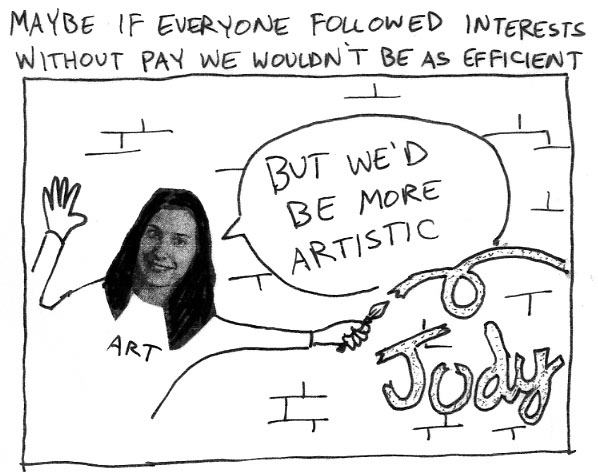 MAYBE IF EVERYONE FOLLOWED INTERESTS
WITHOUT PAY WE WOULDN'T BE AS EFFICIENT
BUT WE'D
BE MORE
ARTISTIC
ART
Jody